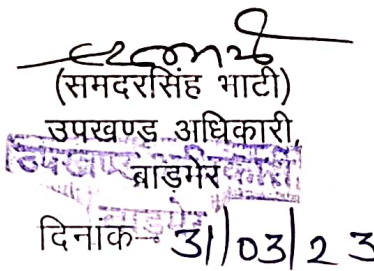 (समदरसिंह भाटी)
उपखण्ड अधिकारी,
बाड़मेर
दिनाक 31/03/23